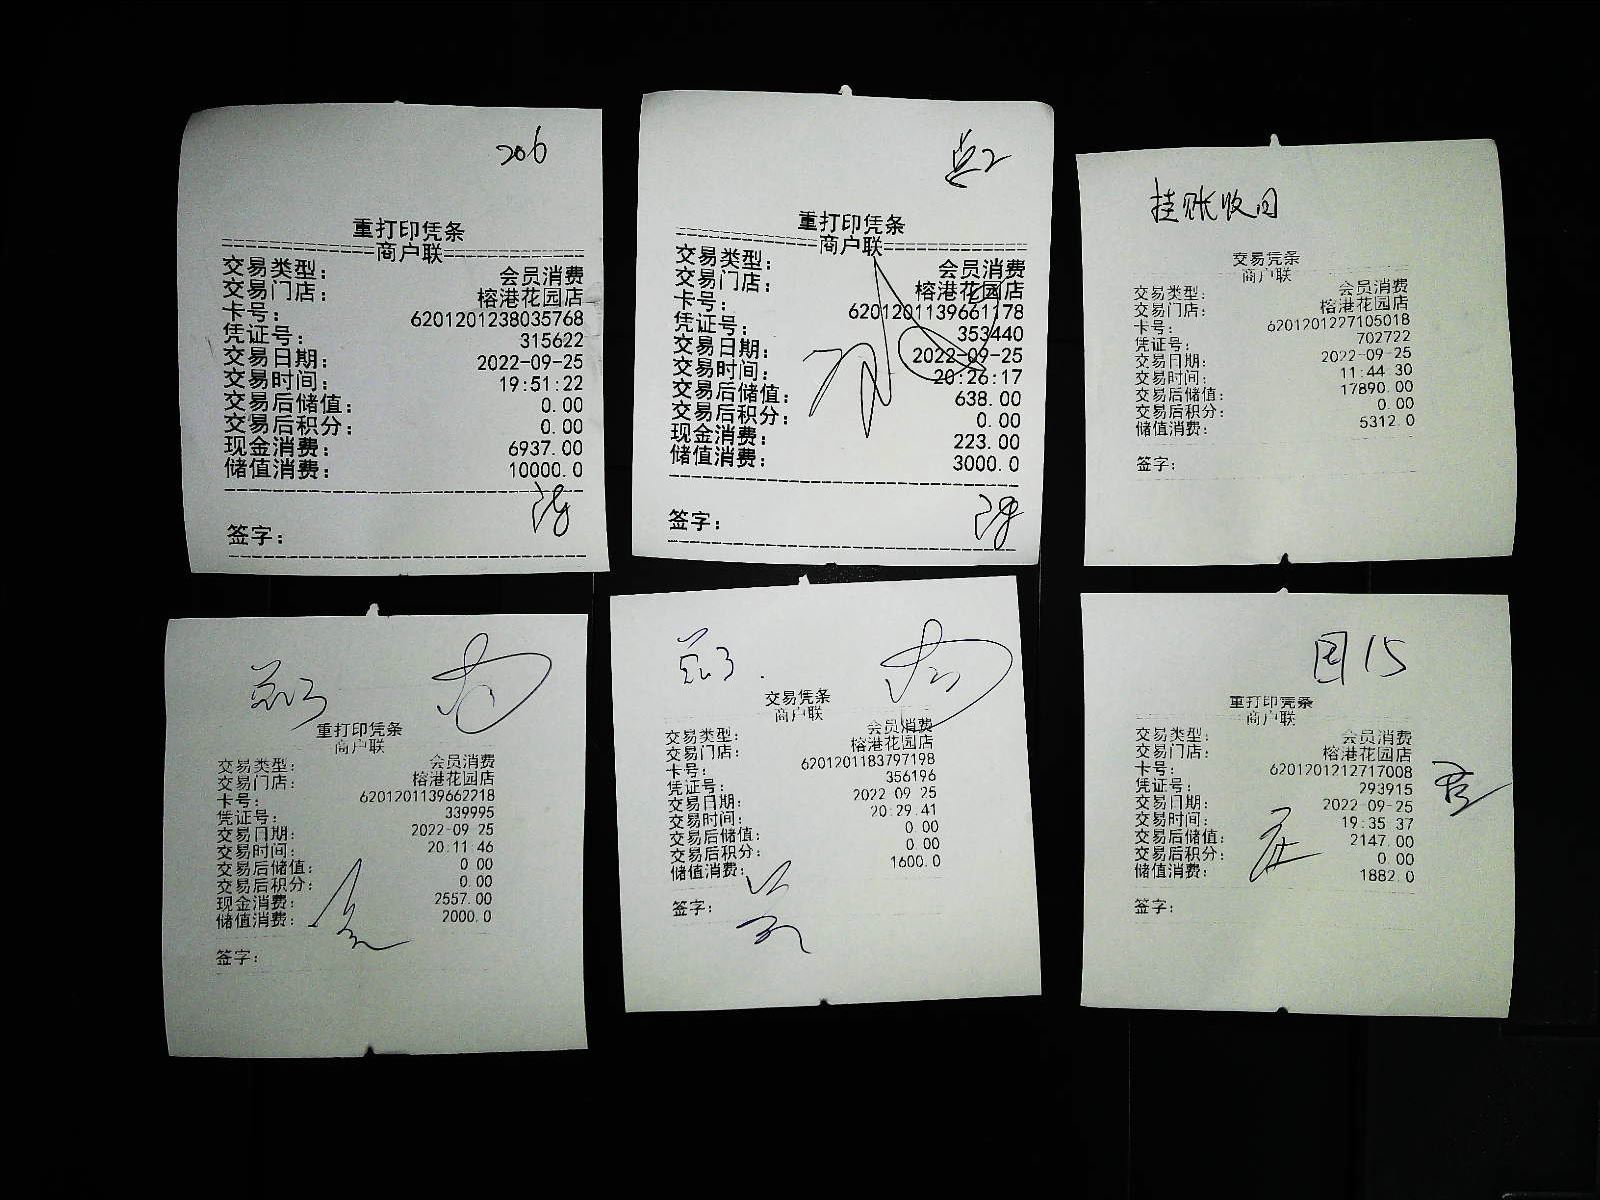 206
重打印凭条
商户联
交易类型: 会员消费
交易门店: 榕港花园店
卡号: 6201201238035768
凭证号: 315622
交易日期: 2022-09-25
交易时间: 19:51:22
交易后储值: 0.00
交易后积分: 0.00
现金消费: 6937.00
储值消费: 10000.0
签字:
重打印凭条
商户联
交易类型: 会员消费
交易门店: 榕港花园店
卡号: 6201201139661178
凭证号: 353440
交易日期: 2022-09-25
交易时间: 20:26:17
交易后储值: 638.00
交易后积分: 0.00
现金消费: 223.00
储值消费: 3000.0
签字:
挂账收回
交易凭条
商户联
交易类型: 会员消费
交易门店: 榕港花园店
卡号: 6201201227105018
凭证号: 702722
交易日期: 2022-09-25
交易时间: 11:44 30
交易后储值: 17890.00
交易后积分: 0.00
储值消费: 5312.0
签字:
重打印凭条
商户联
交易类型: 会员消费
交易门店: 榕港花园店
卡号: 6201201139662218
凭证号: 339995
交易日期: 2022-09 25
交易时间: 20:11 46
交易后储值: 0 00
交易后积分: 0.00
现金消费: 2557.00
储值消费: 2000.0
签字:
交易凭条
商户联
交易类型: 会员消费
交易门店: 榕港花园店
卡号: 6201201183797198
凭证号: 356196
交易日期: 2022 09 25
交易时间: 20:29.41
交易后储值: 0 00
交易后积分: 0.00
储值消费: 1600.0
签字:
国15
重打印凭条
商户联
交易类型: 会员消费
交易门店: 榕港花园店
卡号: 6201201212717008
凭证号: 293915
交易日期: 2022-09-25
交易时间: 19:35 37
交易后储值: 2147.00
交易后积分: 0 00
储值消费: 1882.0
签字: